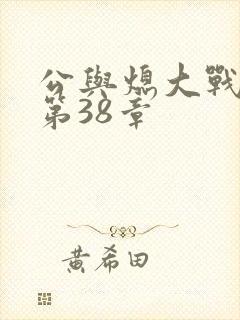 公與熄大戰
第38章
黃希田